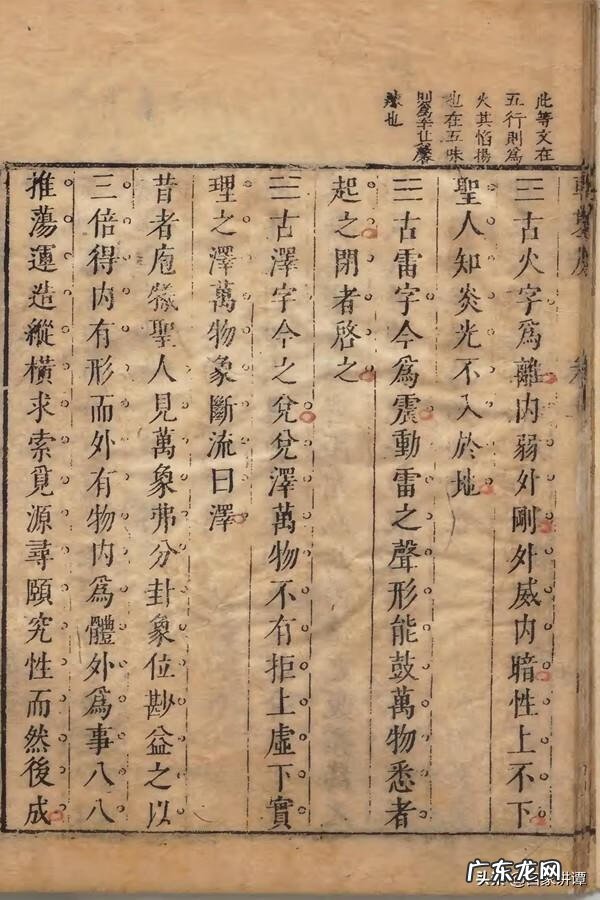 此等文在
五行則爲
火其焰揚
也在五味
則爲辛
辣也
☲古火字爲離內弱外剛外威內暗性上不下
聖人知炎光不入於地
☳古雷字今爲震動雷之聲形能鼓萬物悉者
起之閉者啓之
☱古澤字今之兌兌澤萬物不有拒上虛下實
理之澤萬物象斷流曰澤
昔者庖犧聖人見萬象弗分卦象位尠益之以
三倍得內有形而外有物內爲體外爲事八八
推蕩運造縱橫求索覓源尋頤究性而然後成
广东龙网